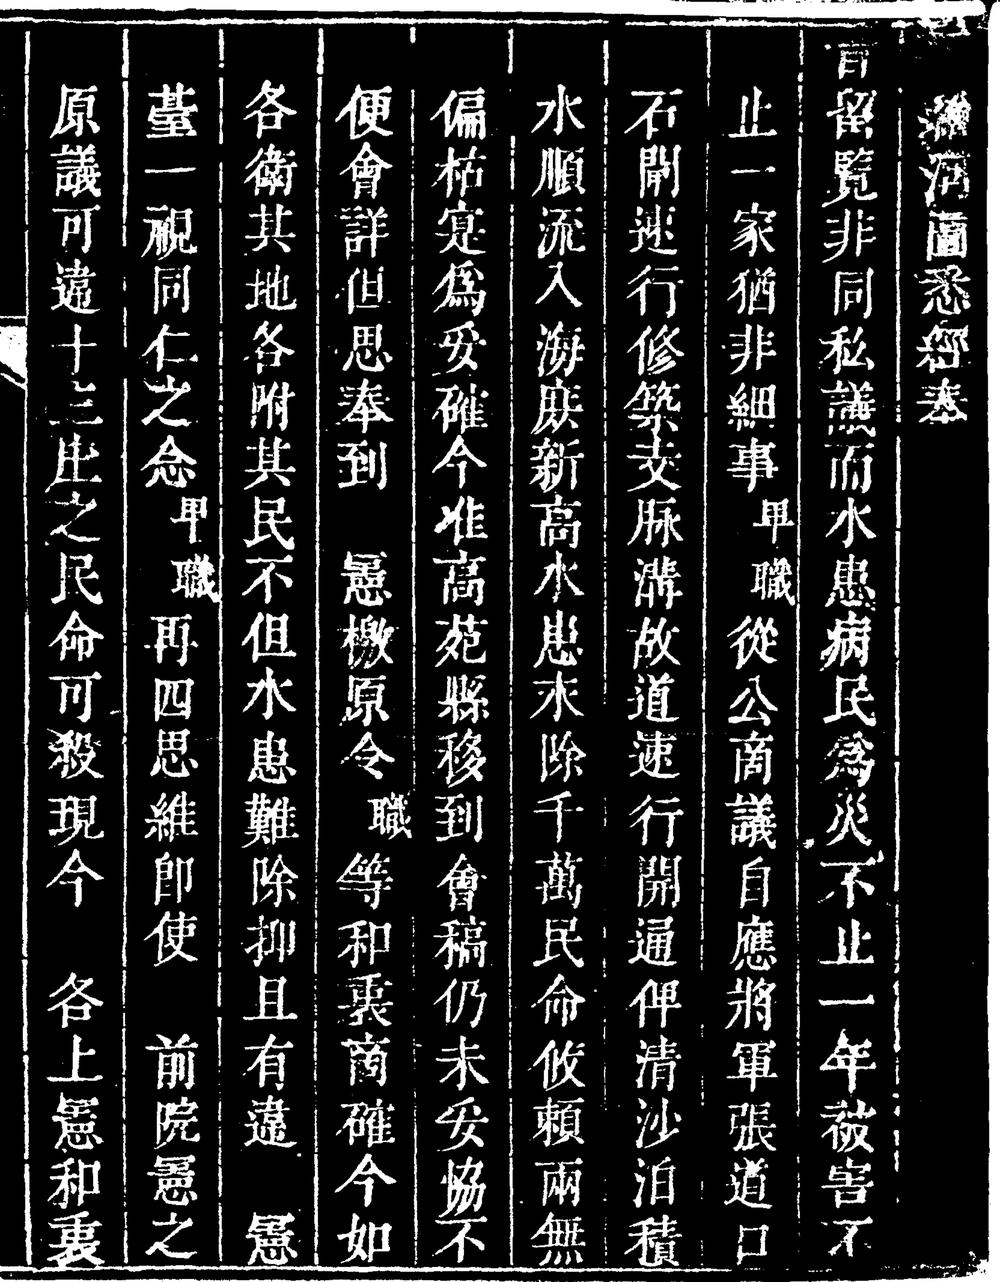 河圖悉經奉
旨留覽非同私議而水患病民為災不止一年被害不
止一家猶非細事卑職從公商議自應將軍張道口
石閘速行修築支脉溝故道速行開通俾清沙泊積
水順流入海庶新高水患未除千萬民命攸頼兩無
偏枯寔為妥確今准高苑縣移到會稿仍未妥恊不
便會詳但思奉到 憲檄原令職等和衷商確今如
各衛其地各附其民不但水患難除抑且有違 憲
臺一視同仁之念卑職再四思維即使 前院憲之
原議可違十三庄之民命可殺現今 各上憲和衷